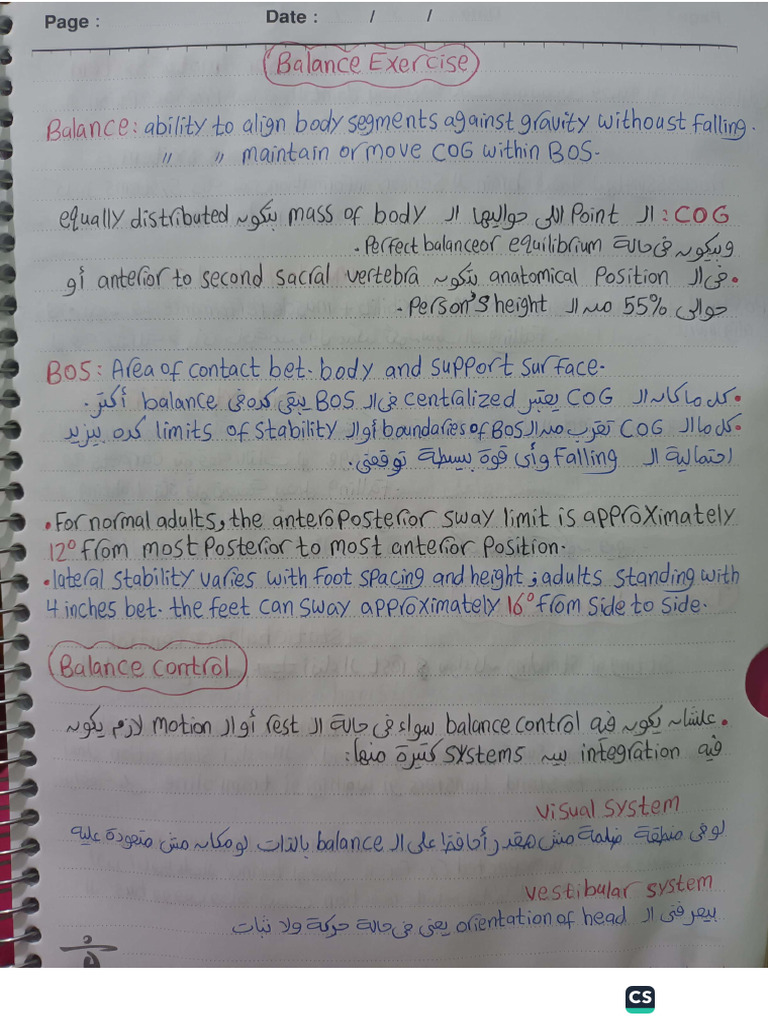 Page :
Date : / /
Balance Exercise
Balance: ability to align body segments against gravity withoust falling.
〃 〃 maintain or move COG within BOS.
COG: ال Point اللى حواليها ال mass of body بتكون equally distributed
وبيكون فى حالة Perfect balance or equilibrium.
• فى ال anatomical Position بتكون anterior to second sacral vertebra أو
حوالى 55% من ال Person's height.
BOS: Area of contact bet. body and support surface.
• كل ما كان ال COG يعتبر centralized فى ال BOS يبقى كده فى balance أكتر.
• كل ما ال COG تقرب من ال boundaries of BOS أو ال limits of stability كده بيزيد
احتمالية ال Falling وأى قوة بسيطة توقعنى.
• For normal adults, the anteroposterior sway limit is approximately
12° from most Posterior to most anterior Position.
• lateral stability varies with foot spacing and height; adults standing with
4 inches bet. the feet can sway approximately 16° from side to side.
Balance control
• علشان يكون فيه balance control سواء فى حالة ال rest أو ال motion لازم يكون
فيه integration بين systems كتيرة منها:
visual system
لو فى منطقة ضلمة مش هقدر أحافظ على ال balance بالذات لو مكان مش متعودة عليه
vestibular system
بيعرفنى ال orientation of head يعنى فى حالة حركة ولا ثبات
CS